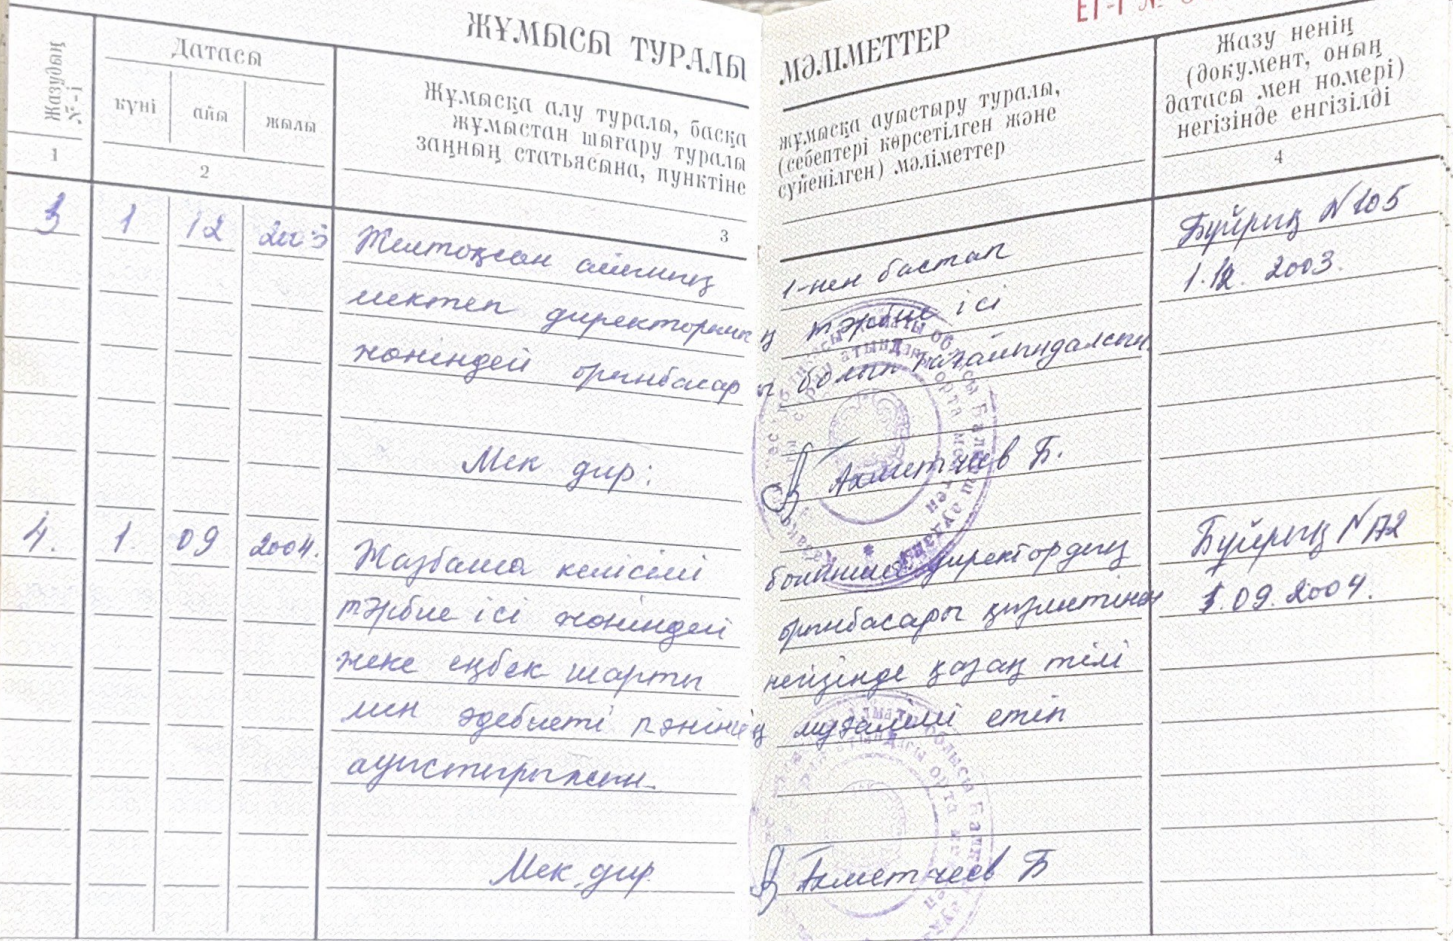 ЖҰМЫСЫ ТУРАЛЫ МӘЛІМЕТТЕР
ЕТ-I №
Жазудың №-і
Датасы
күні айы жылы
Жұмысқа алу туралы, басқа жұмысқа ауыстыру туралы,
жұмыстан шығару туралы (себептері көрсетілген және
заңның статьясына, пунктіне сүйенілген) мәліметтер
Жазу ненің
(документ, оның
датасы мен номері)
негізінде енгізілді
1 2 3 4
3 1 12 2003 Желтоқсан айының 1-нен бастап Бұйрық N 105
мектеп директорының тәрбие ісі 1.12. 2003.
жөніндей орынбасары болып тағайындалсын.
Мек дир: Ахметчеев Б.
4. 1. 09 2004. Жазбаша келісімі бойынша директордың Бұйрық N 172
тәрбие ісі жөніндей орынбасары қызметінен 1.09.2004.
жеке еңбек шарты негізінде қазақ тілі
мен әдебиеті пәнінің мұғалімі етіп
ауыстырылсын.
Мек. дир. Ахметчеев Б